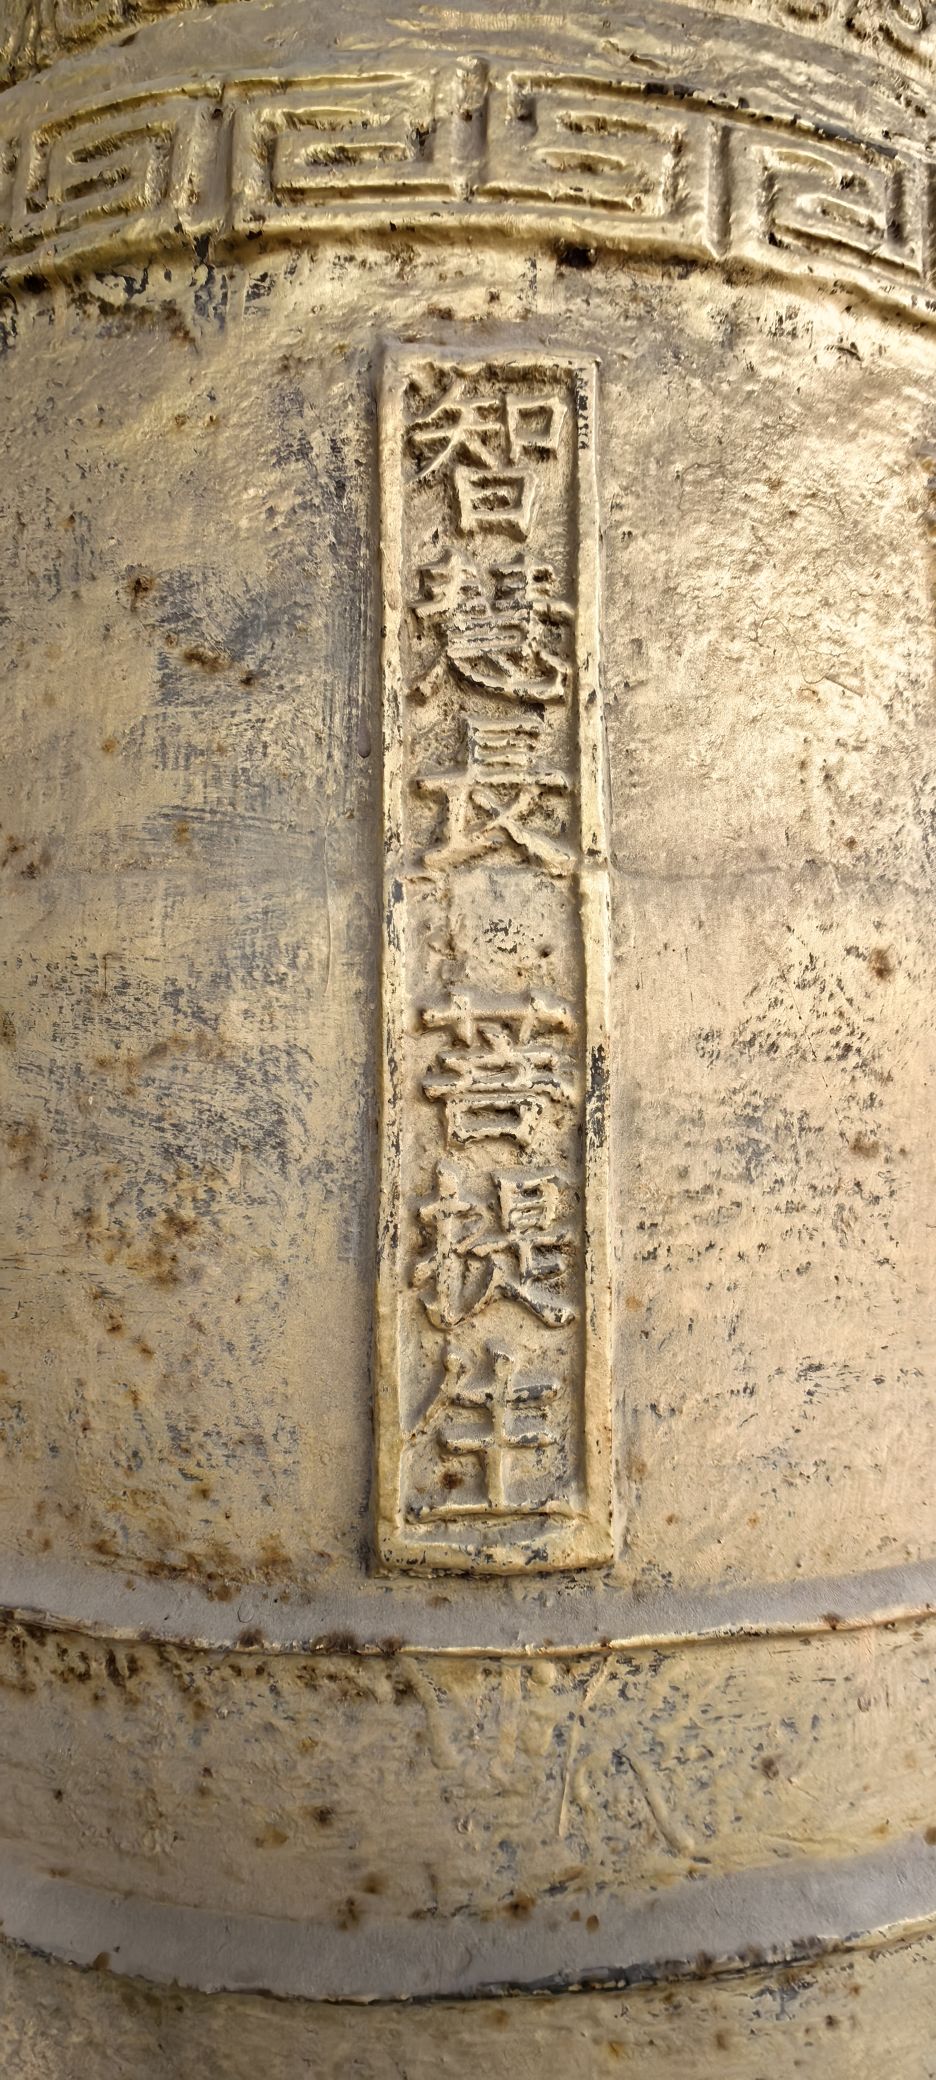 智慧長菩提生